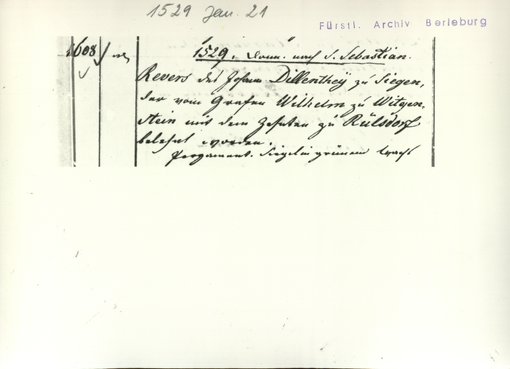 1529 Jan. 21
Fürstl. Archiv Berleburg
1608
1529. Donn. nach S. Sebastian.
Revers des Johann Dillenthey zu Siegen,
der vom Grafen Wilhelm zu Witgen-
stein mit dem Zehnten zu Rülsdorf
belehnt worden.
Pergament. Siegel in grünem Wachs